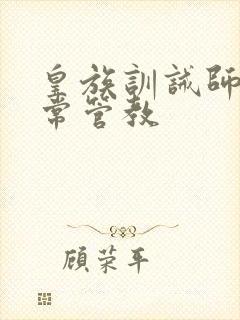 皇族訓誡師
常管教
顾荣平